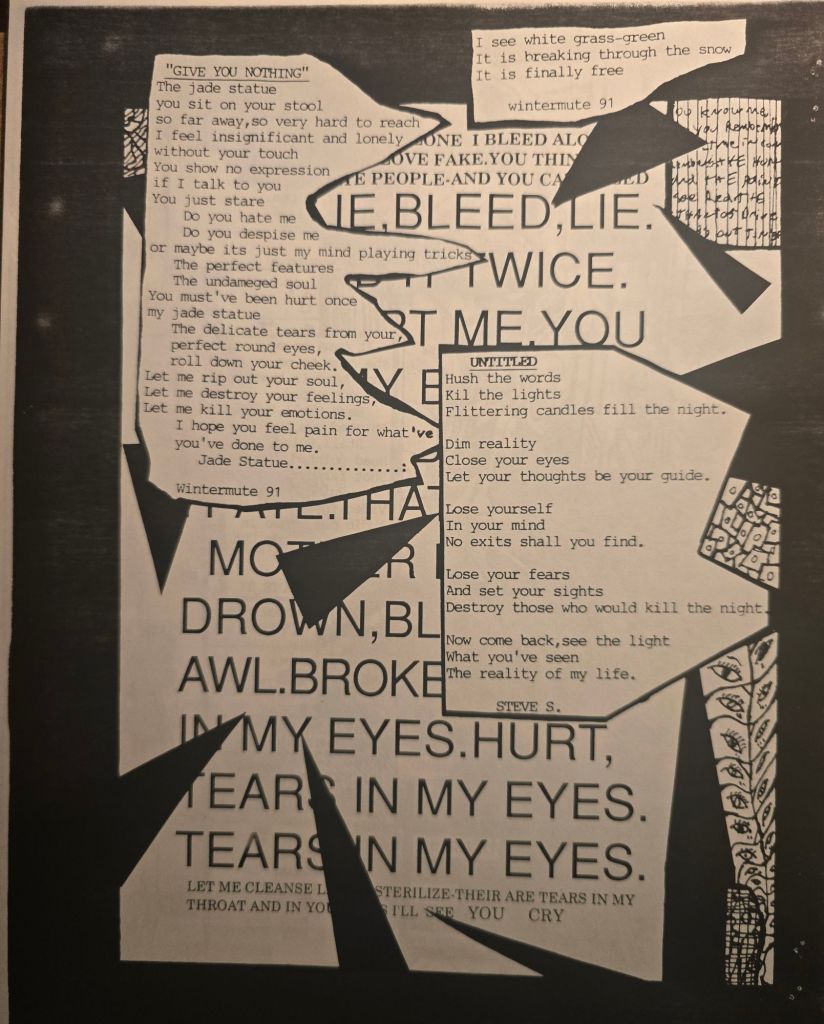 "GIVE YOU NOTHING"
The jade statue
you sit on your stool
so far away,so very hard to reach
I feel insignificant and lonely
without your touch
You show no expression
if I talk to you
You just stare
Do you hate me
Do you despise me
or maybe its just my mind playing tricks
The perfect features
The undameged soul
You must've been hurt once
my jade statue
The delicate tears from your,
perfect round eyes,
roll down your cheek.
Let me rip out your soul,
Let me destroy your feelings,
Let me kill your emotions.
I hope you feel pain for what've
you've done to me.
Jade Statue..............:
Wintermute 91
I see white grass-green
It is breaking through the snow
It is finally free
wintermute 91
I BLEED
FAKE.YOU
PEOPLE-AND YOU
BLEED,LIE.
TWICE.
ME.YOU
UNTITLED
Hush the words
Kil the lights
Flittering candles fill the night.
Dim reality
Close your eyes
Let your thoughts be your guide.
Lose yourself
In your mind
No exits shall you find.
Lose your fears
And set your sights
Destroy those who would kill the night.
Now come back,see the light
What you've seen
The reality of my life.
STEVE S.
DROWN,
AWL.
IN MY EYES.HURT,
TEARS IN MY EYES.
TEARS IN MY EYES.
LET ME CLEANSE STERILIZE-THEIR ARE TEARS IN MY
THROAT AND IN I'LL SEE YOU CRY